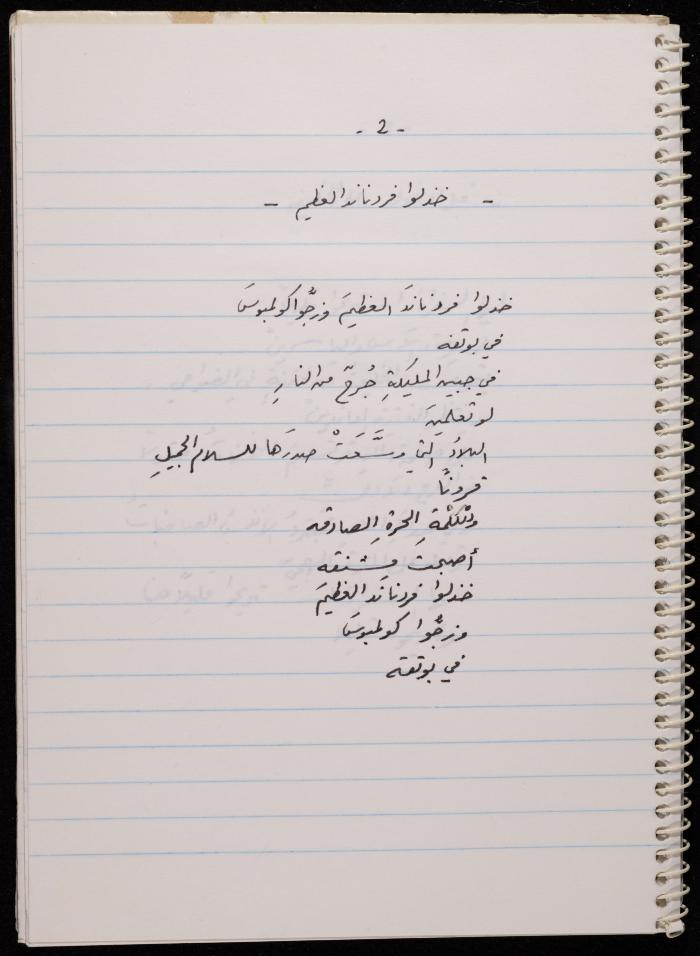 - 2 -
- خذلوا فردناند العظيم -
خذلوا فردناندَ العظيمَ وزجُّوا كولمبوسَ
في بوتقه
في جبين المليكةِ جُرحٌ من النارِ
لو تعلمينَ
البلادُ التي وسَّعَتْ صدرَها للسلام الجميلِ
قرونًا
وللكلمةِ الحرةِ الصادقه
أصبحتْ مشنقه
خذلوا فردناندَ العظيمَ
وزجُّوا كولمبوسَ
في بوتقه